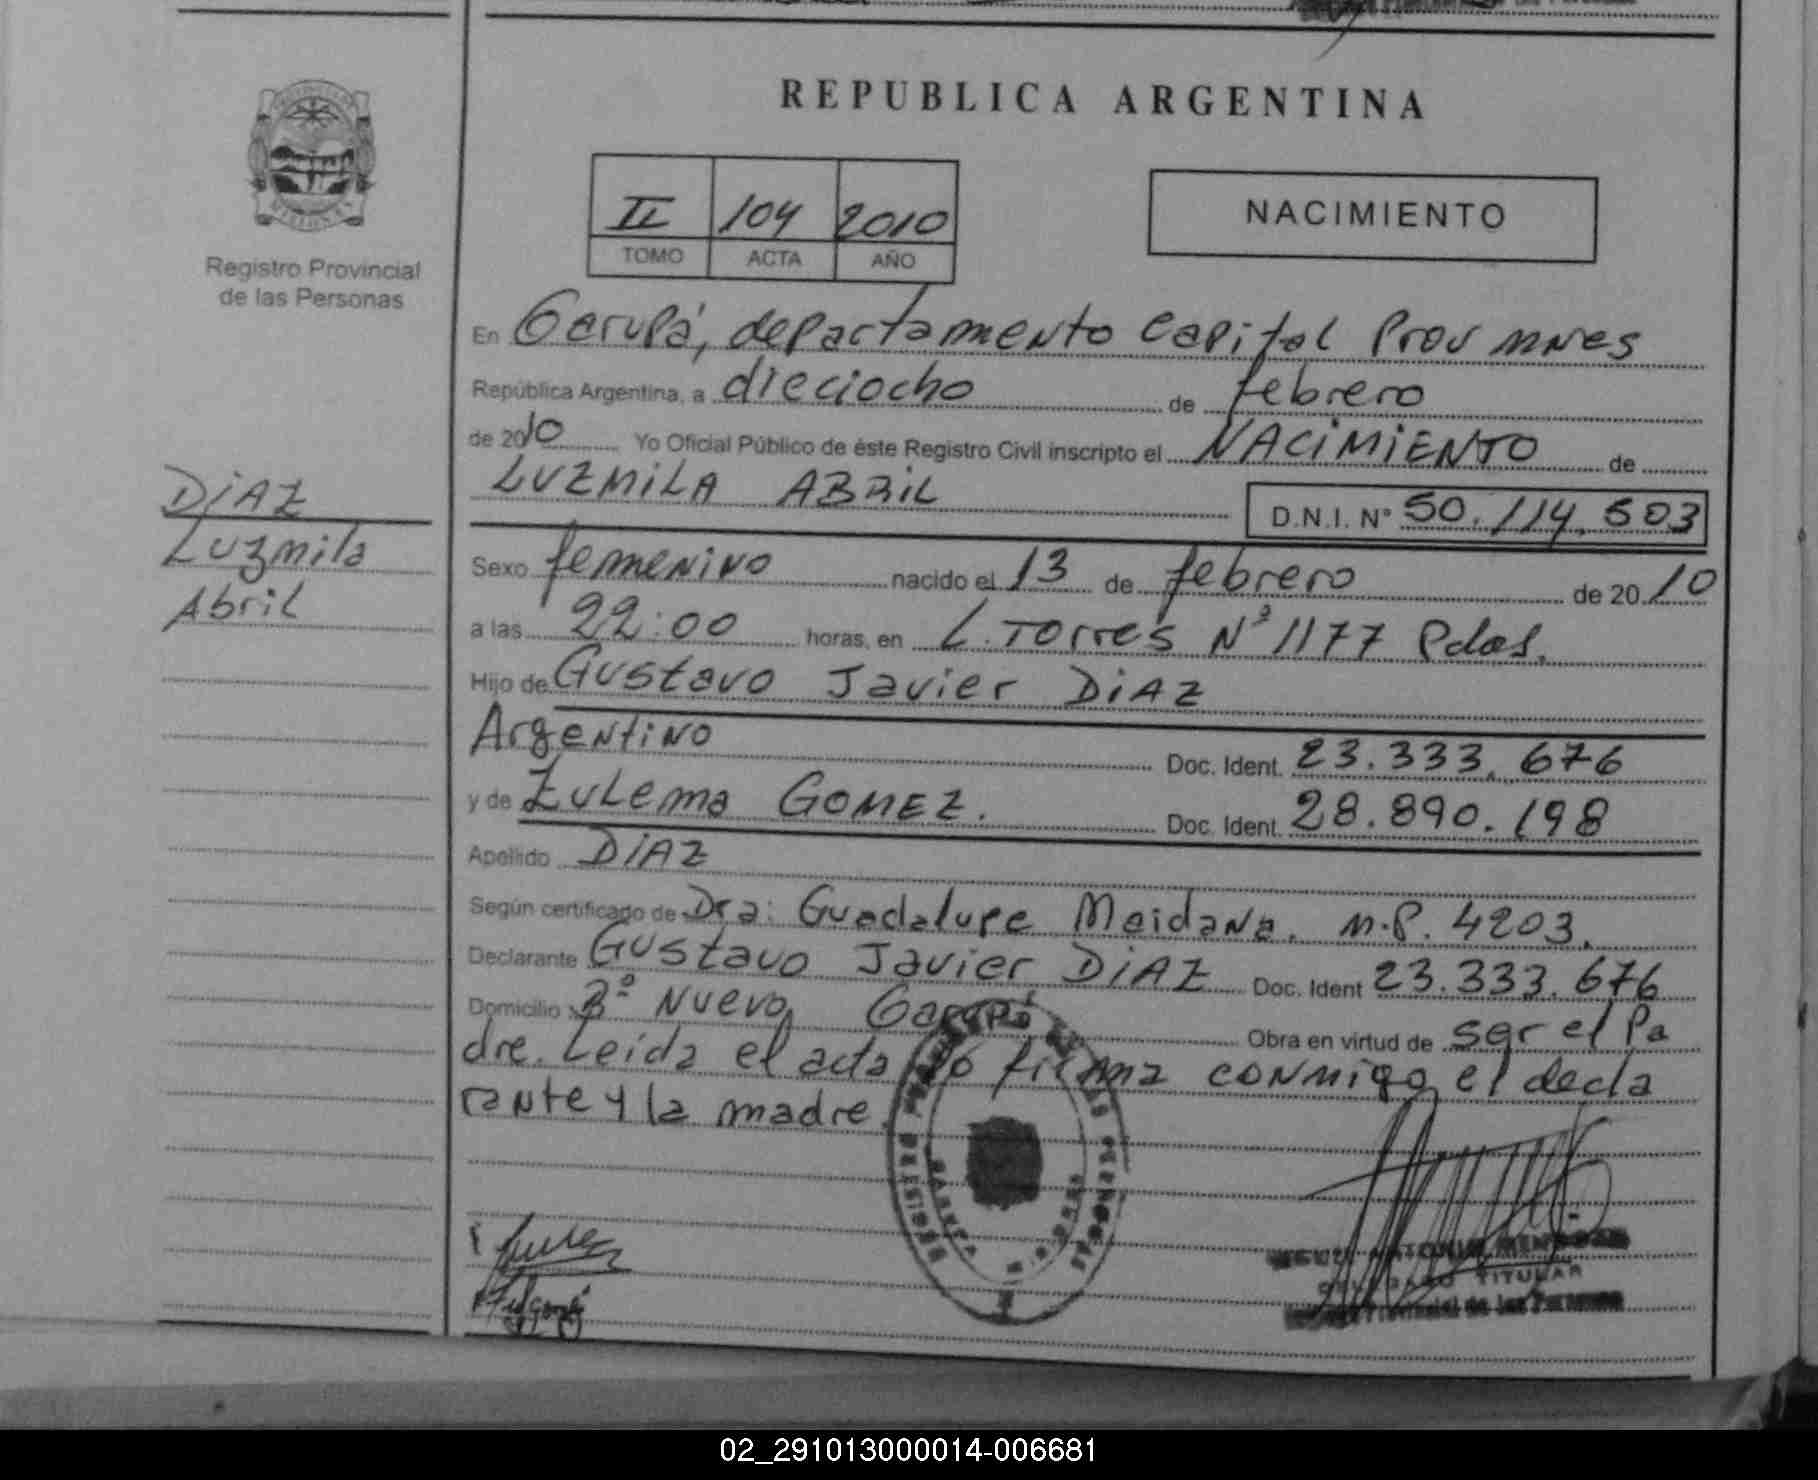 REPUBLICA ARGENTINA
II 104 2010
TOMO ACTA AÑO
NACIMIENTO
Registro Provincial
de las Personas
En Garupá, departamento Capital Prov mnes
República Argentina, a dieciocho de febrero
de 2010 Yo Oficial Público de éste Registro Civil inscripto el NACIMIENTO de
LUZMILA ABRIL D.N.I. N° 50.114.503
DIAZ
Luzmila
Abril
Sexo femenino nacido el 13 de febrero de 2010
a las 22:00 horas, en L. Torres N° 1177 Pdas.
Hijo de Gustavo Javier DIAZ
Argentino Doc. Ident. 23.333.676
y de Zulema GOMEZ. Doc. Ident. 28.890.198
Apellido DIAZ
Según certificado de Dra: Guadalupe Maidana. M.P. 4203.
Declarante Gustavo Javier DIAZ Doc. Ident 23.333.676
Domicilio B° Nuevo Garupá Obra en virtud de ser el Pa
dre. Leída el acta la firma conmigo el decla
rante y la madre
TITULAR
Provincial de las Personas
02_291013000014-006681